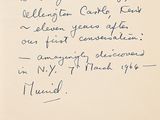 Wellington Castle, Kent
– eleven years after
our first conversation:
– amazingly discovered
in N.Y. 7th March 1966 –